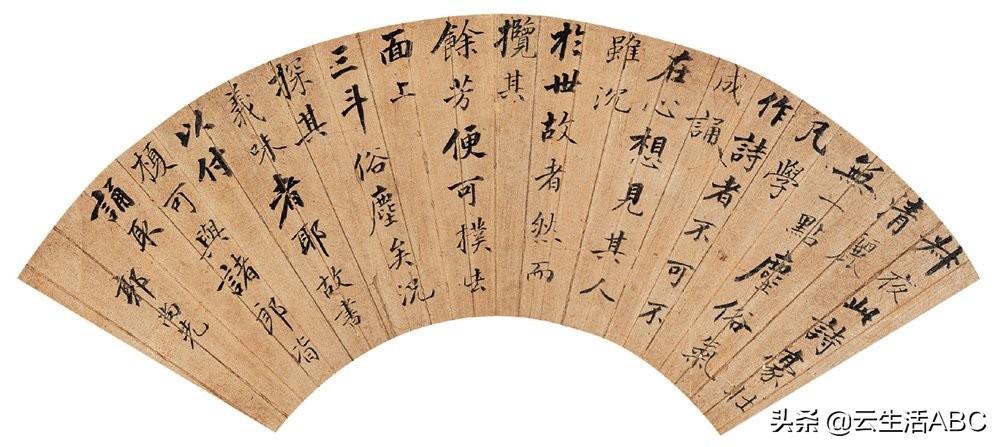 叔夜此詩豪壯
清麗
無一點塵俗氣
凡學
作詩者不可不
成誦
在心想見其人
雖沉
於世故者然而
攬其
餘芳便可撲去
面上
三斗俗塵矣況
探其
義味者耶故書
以付
榎可與諸郎皆
誦取 郭尚先
头条 @云生活ABC